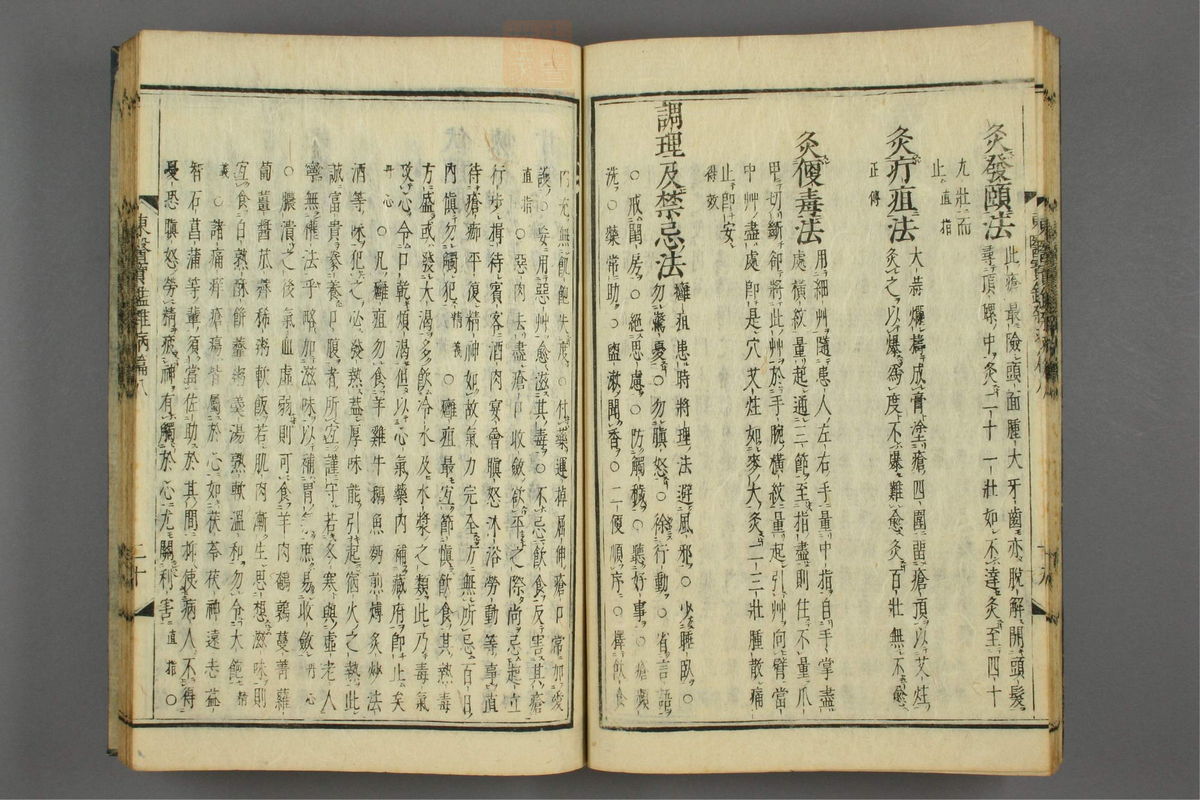 灸發頤法 此瘡最險頭面腫大牙齒亦脫解開頭髮
尋頂螺中灸二十一壯如不達灸至四十
九壯而
止 直指
灸疔疽法 大蒜爛擣成膏塗瘡四圍留瘡頂以艾炷
灸之以爆爲度不爆難愈灸百壯無不愈
正傳
灸便毒法 用細艸隨患人左右手量中指自手掌盡
處橫紋量起通三節至指盡則住不量爪
甲切斷卻將此艸於手腕橫紋量起引艸向臂當
中艸盡處卽是穴艾炷如麥大灸二三壯腫散痛
止卽安
得效
調理及禁忌法 癰疽患時將理法避風邪○少睡臥○
勿驚憂○勿嗔怒○徐行動○省言語
○戒閨房○絕思慮○防觸穢○聽好事○瘡
洗○藥常助○盥漱聞香○二便順序○擇飮食
無飢飽失度○付藥運掉屈伸瘡口常加愛
護○妄用惡艸愈滋其毒○不忌飮食反害其瘡
直指○惡肉去盡瘡口收斂欲平之際尙忌起立
行步揖待賓客酒肉宴會嗔怒沐浴勞動等事直
待瘡瘢平復精神如故氣力完全方無所忌百日
內愼勿觸犯 精義 ○癰疽最宜節愼飮食其熱毒
方盛或發大渴多飮冷水及水漿之類此乃毒氣
攻心令口乾煩渴但以心氣藥內補藏府卽止矣
丹心○凡癰疽勿食羊雞牛鵝魚麪煎煿炙炒法
酒等味犯之必發熱蓋厚味能引起宿火之熱此
誠富貴豢養口腹者所宜謹守若冬寒與虛老人
寧無權法乎略加滋味以補胃氣庶易收斂 丹心
○膿潰之後氣血虛弱則可食羊肉鵪鶉蔓菁蘿
蔔薑醬瓜虀稀粥軟飯若肌肉漸生思想滋味則
宜食白熟酥餠虀粥羹湯熟軟溫和勿令大飽 精
義○諸痛痒瘡瘍皆屬於心如茯苓茯神遠志益
智石菖蒲等輩須當佐助於其間抑使病人不得
憂恐嗔怒勞精疲神有觸於心尤關利害 直指○
東醫寶鑑雜病篇八 二十